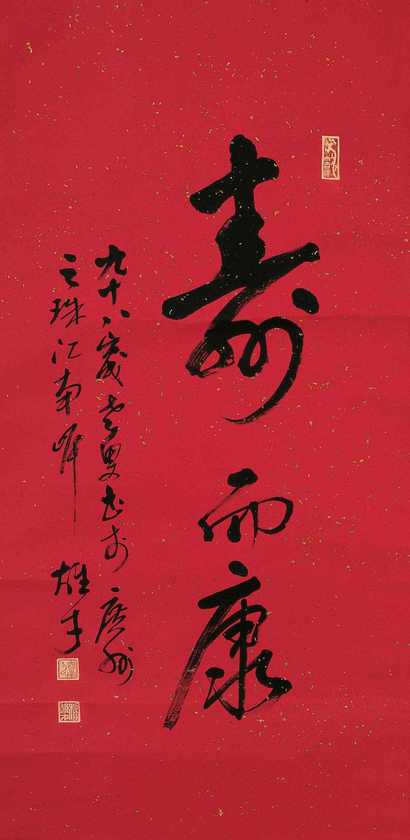 寿而康
九十八岁老叟书于广州
之珠江南岸
雄才